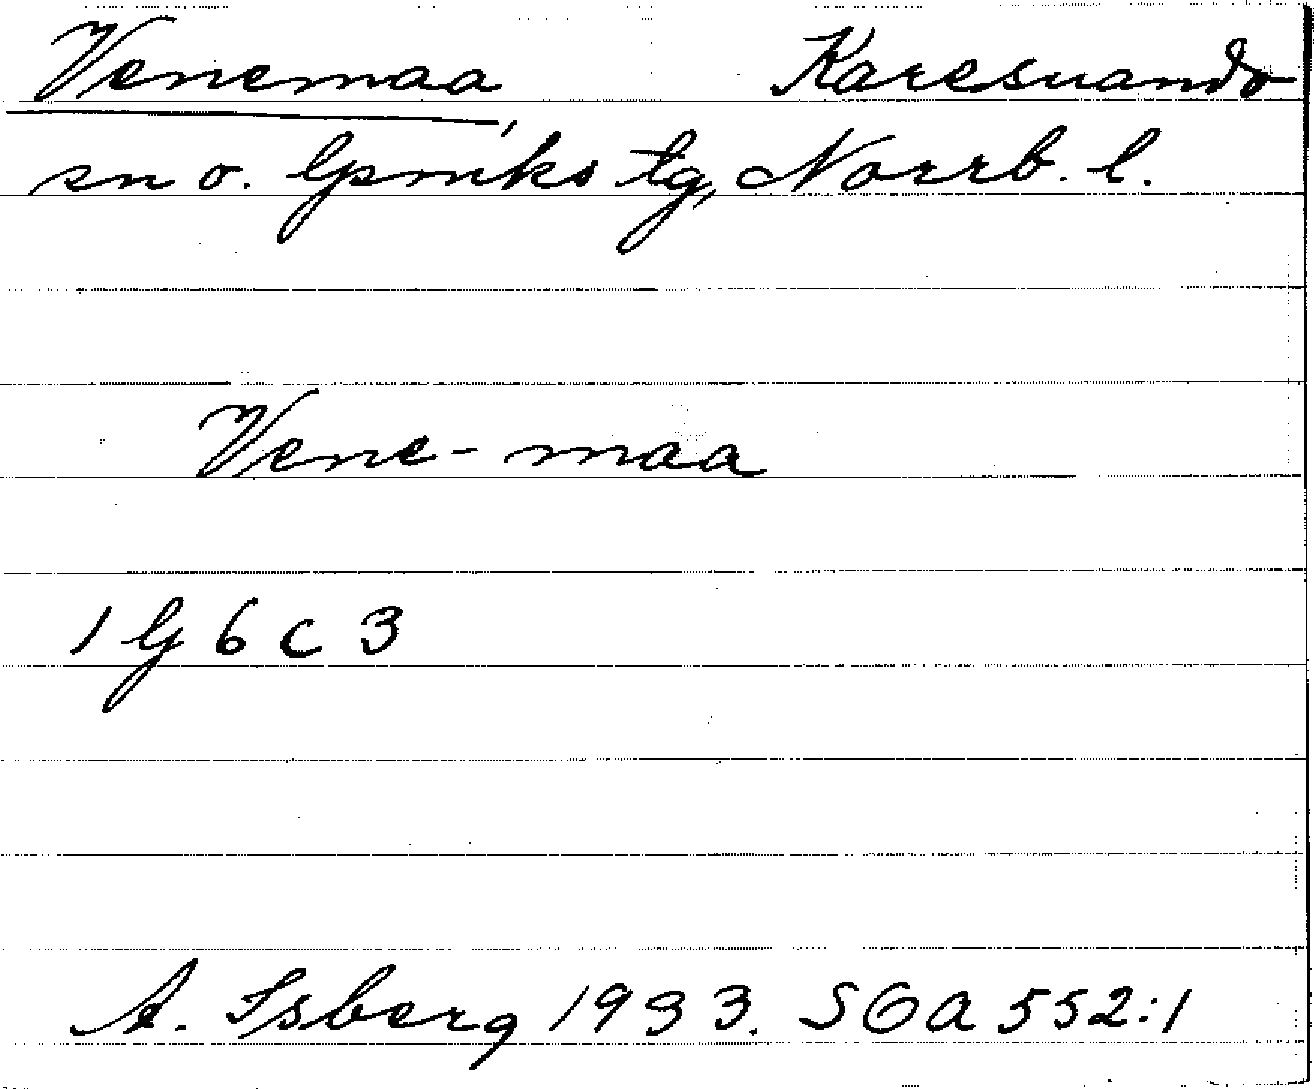 Venemaa, Karesuando
sn o. Gpmks tg, Norrb. l.
Vene-maa
1 G 6 c 3
A. Isberg 1933. SOA 552:1